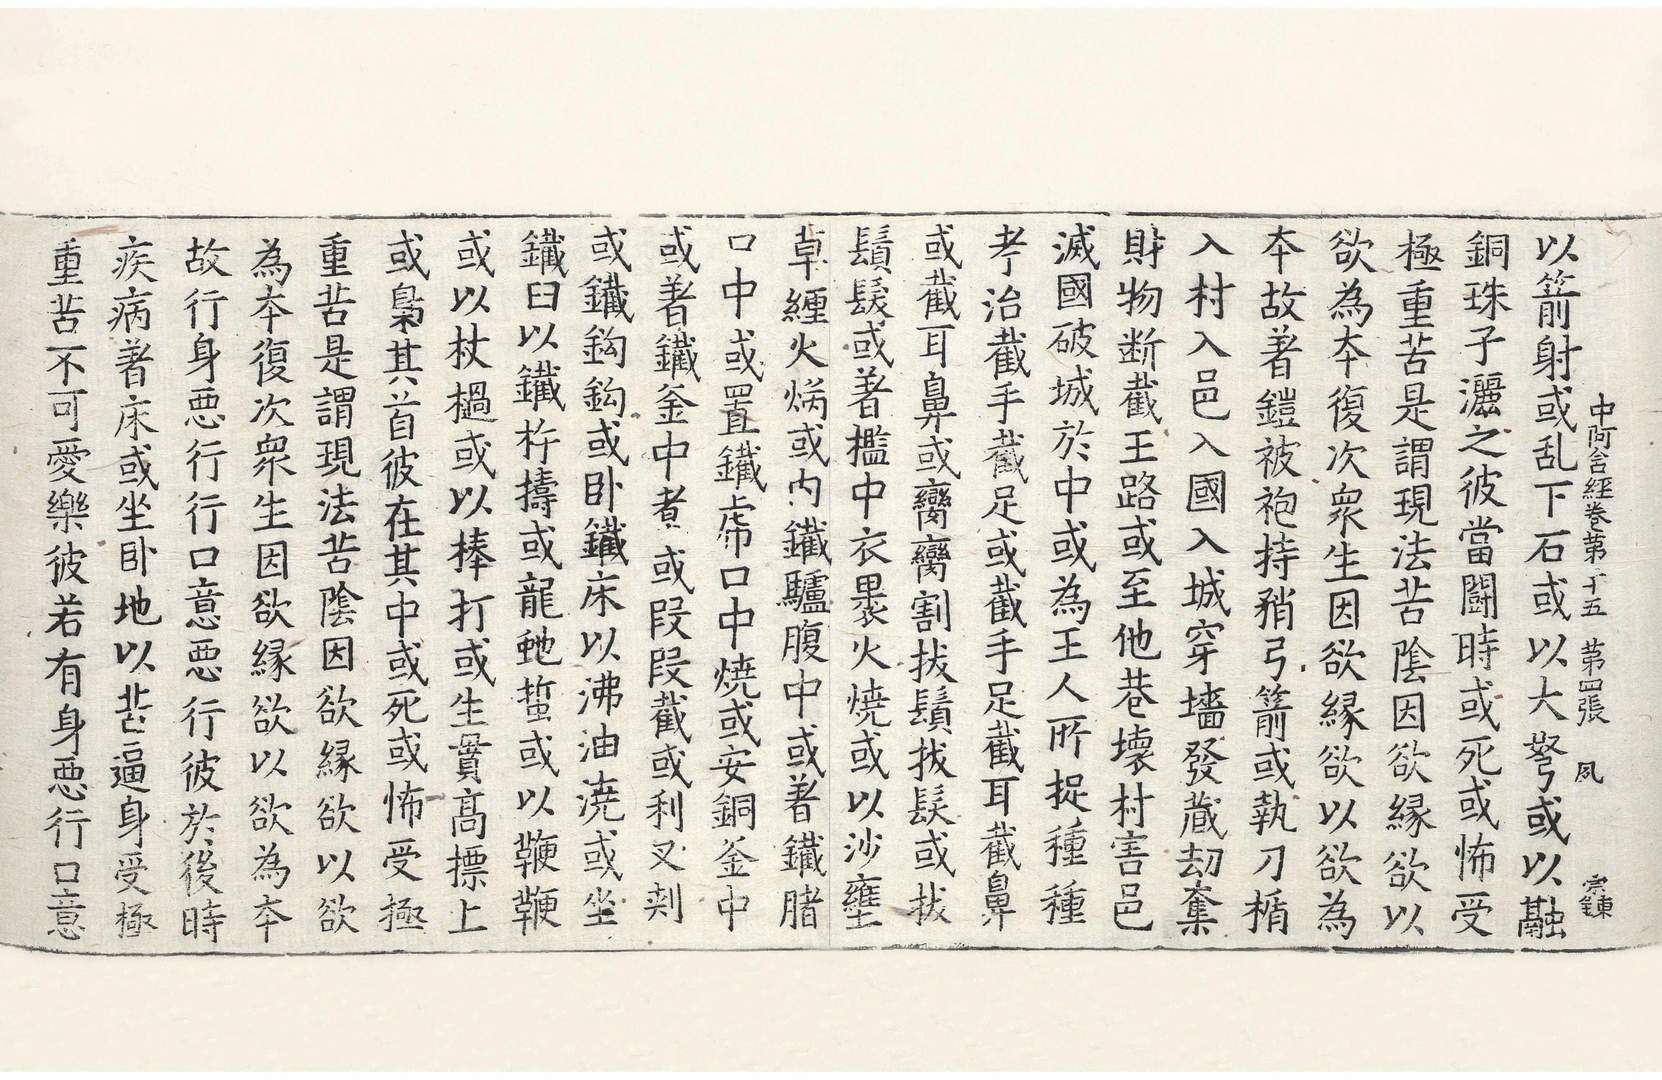 中阿含經卷第二十五 第四張 夙 宗鍊
以箭射或乱下石或以大弩或以融
銅珠子灑之彼當鬪時或死或怖受
極重苦是謂現法苦陰因欲緣欲以
欲為夲復次衆生因欲緣欲以欲為
夲故著鎧被袍持矟弓箭或執刀楯
入村入邑入國入城穿墻發藏刧奪
財物断截王路或至他巷壞村害邑
滅國破城於中或為王人所捉種種
考治截手截足或截手足截耳截鼻
或截耳鼻或臠臠割拔鬚拔髮或拔
鬚髮或著檻中衣裹火燒或以沙壅
草纏火焫或内鐵驢腹中或著鐵猪
口中或置鐵虎口中燒或安銅釜中
或著鐵釜中煮或段段截或利叉刾
或鐵鈎鈎或卧鐵床以沸油澆或坐
鐵臼以鐵杵擣或龍虵蜇或以鞭鞭
或以杖檛或以棒打或生貫高摽上
或梟其首彼在其中或死或怖受極
重苦是謂現法苦陰因欲緣欲以欲
為夲復次衆生因欲緣欲以欲為夲
故行身惡行行口意惡行彼於後時
疾病著床或坐卧地以苦逼身受極
重苦不可愛樂彼若有身惡行口意